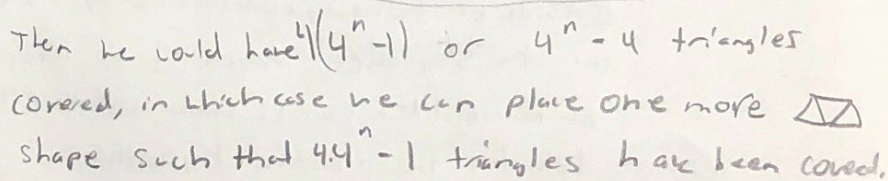 Then we could have 4(4^n-1) or 4^n - 4 triangles
covered, in which case we can place one more
shape such that 4.4^n - 1 triangles have been coved.